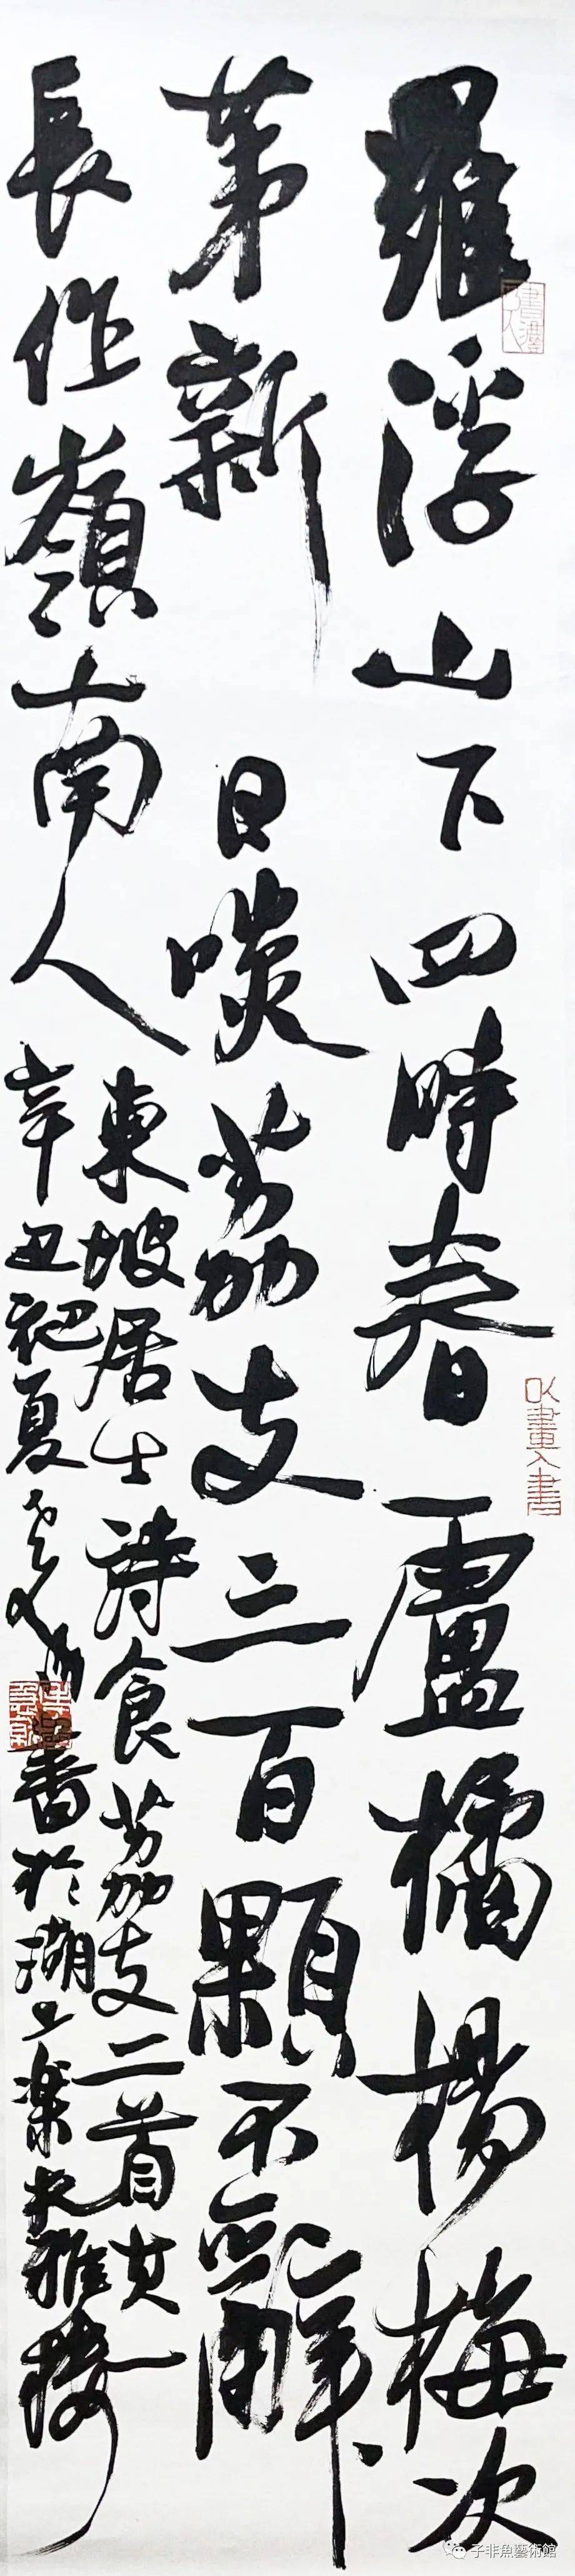 羅浮山下四時春盧橘楊梅次
苐新日啖荔支三百顆不辭
長作嶺南人
東坡居士詩食荔支二首其
辛丑初夏書於湖上樂大雅樓
以畫入書
子非魚藝術館